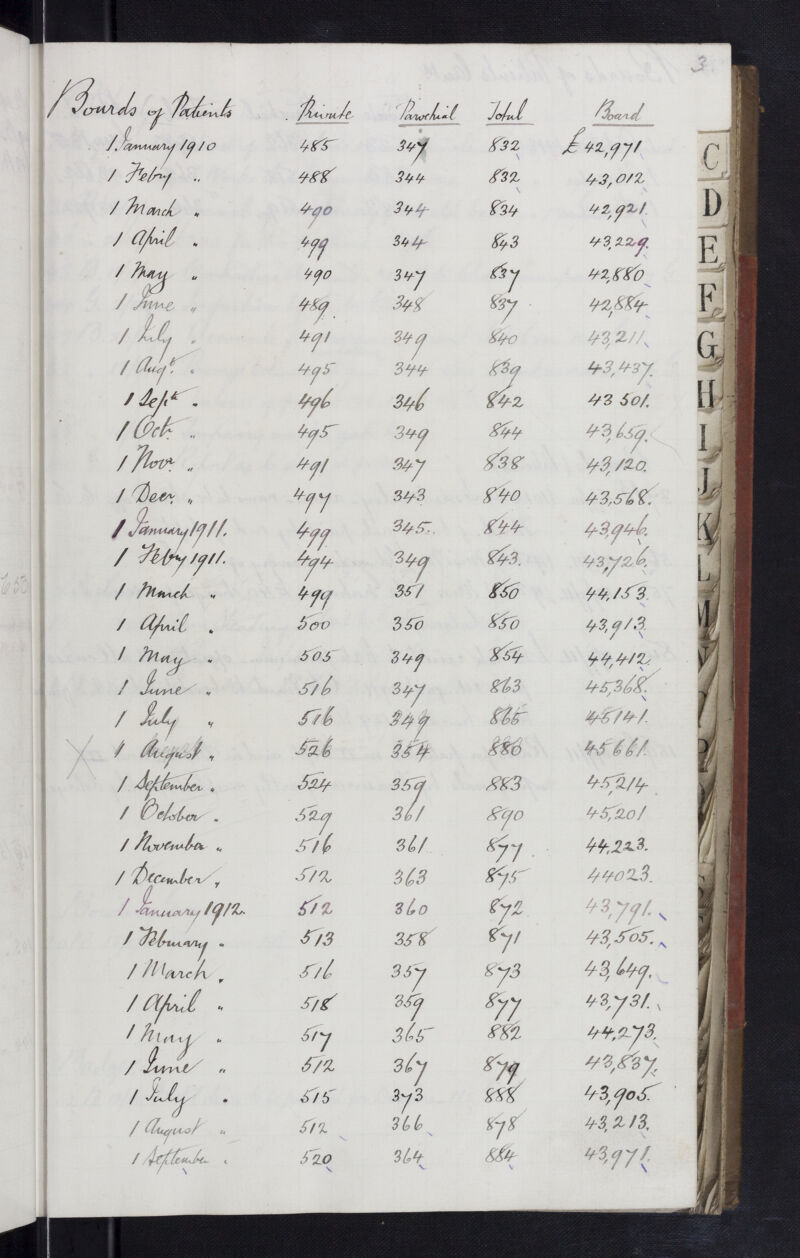 3
Boards of Patients Private Parochial Total Board
1 January 1910 485 347 832 £42,971
1 Febry " 488 344 832 43,012
1 March " 490 344 834 42,921
1 April " 499 344 843 43,229.
1 May " 490 347 837 42,880
1 June " 489 348 837 42,884
1 July " 491 349 840 43,211
1 Augt. " 495 344 839 43,437.
1 Sept " 496 346 842 43 501.
1 Oct. " 495 349 844 43,659.
1 Novr. " 491 347 838 43,120.
1 Decr. " 497 343 840 43,568.
1 January 1911. 499 345. 844 43,946.
1 Febry 1911. 494 349 843. 43,726.
1 March " 499 351 850 44,153
1 April " 500 350 850 43,913
1 May " 505 349 854 44,412
1 June " 516 347 863 45,368.
1 July " 516 349 865 45141.
X 1 August " 526 354 880 45661.
1 September " 524 359 883 45,214
1 October " 529 361 890 45,201
1 November " 516 361 877 44,223.
1 December " 512 363 875 44023.
1 January 1912 512 360 872 43,791.
1 February " 513 358 871 43,505.
1 March " 516 357 873 43,649.
1 April " 518 359 877 43,731.
1 May " 517 365 882 44,273.
1 June " 512 367 879 43,837.
1 July " 515 373 888 43,905.
1 August " 512 366 878 43,213.
1 September " 520 364 884 43,971.
C
D
E
F
G
H
I
J
K
L
M
N
P